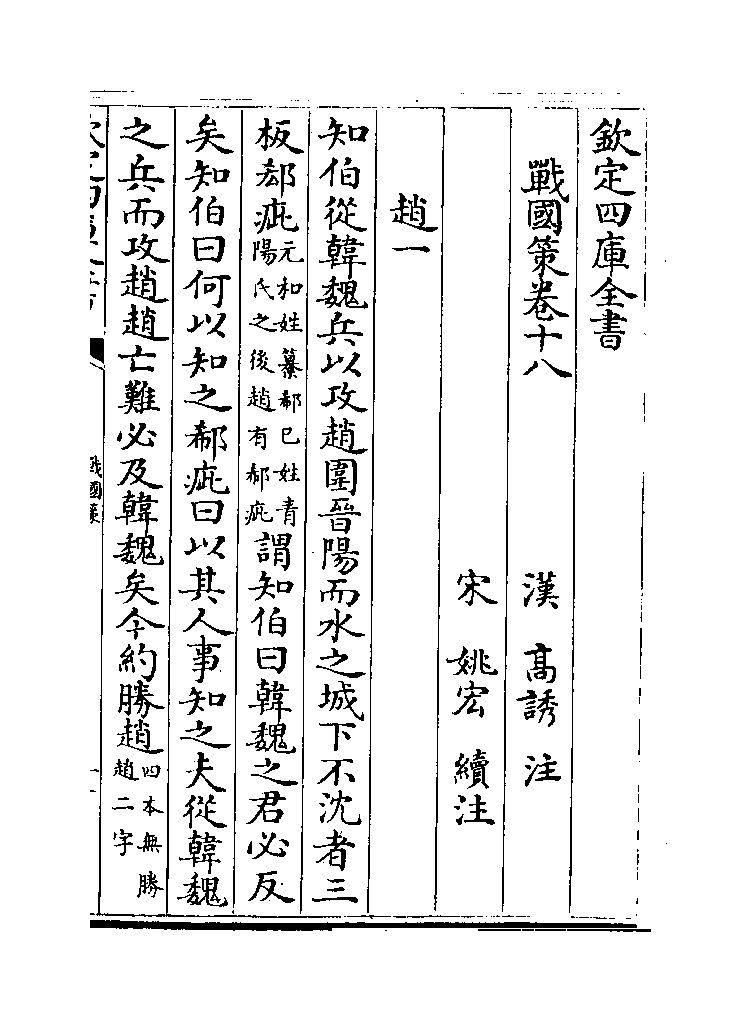 欽定四庫全書
戰國策卷十八
漢　高誘　注
宋　姚宏　續注
趙一
知伯從韓魏兵以攻趙圍晉陽而水之城下不沈者三
板郄疵元和姓纂郄已姓青陽氏之後趙有郄疵謂知伯曰韓魏之君必反
矣知伯曰何以知之郄疵曰以其人事知之夫從韓魏
之兵而攻趙趙亡難必及韓魏矣今約勝趙四本無勝趙二字
戰國策